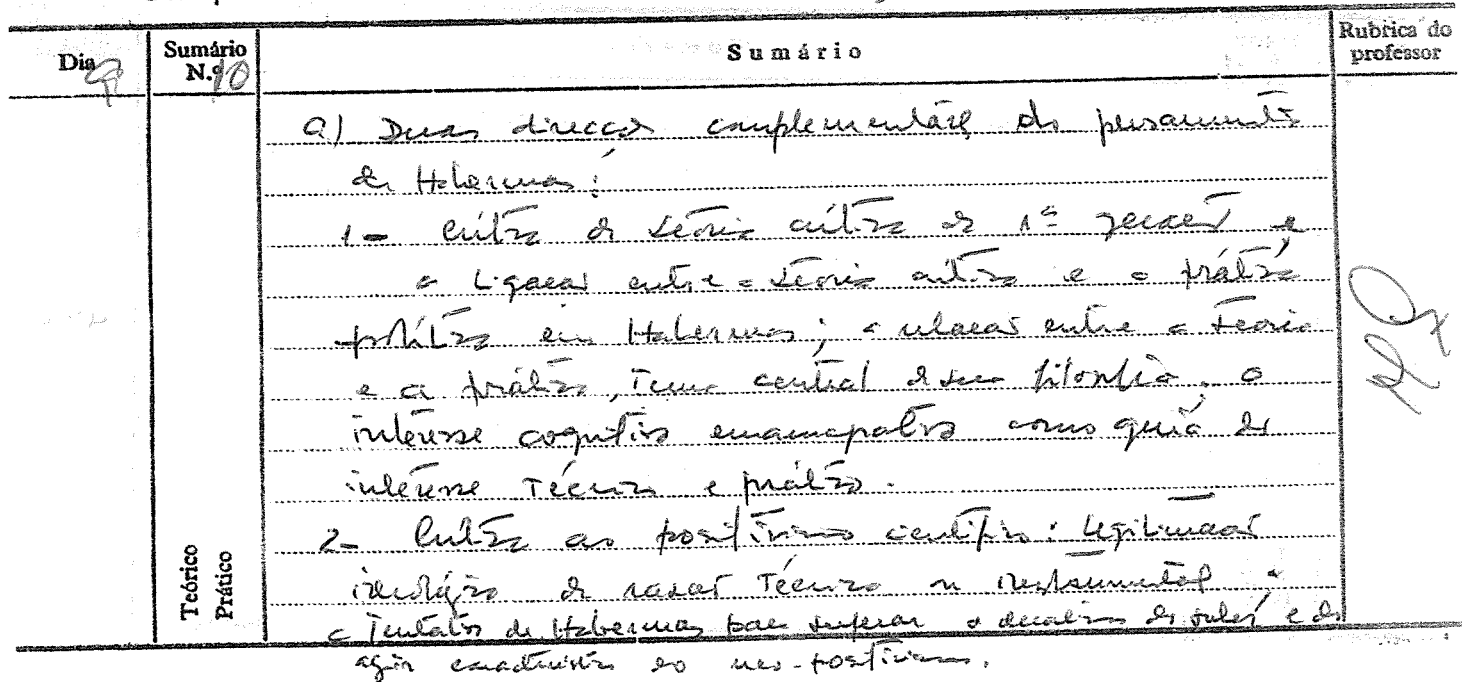 Dia 9 Sumário N.º 10 Sumário Rubrica do professor
a) Duas direcções complementares do pensamento
de Habermas:
1- Crítica da teoria crítica da 1ª geração e
a ligação entre a teoria crítica e a prática
política em Habermas; a relação entre a teoria
e a prática, tema central da sua filosofia. O
interesse cognitivo emancipatório como guia do
interesse técnico e prático.
2- Crítica ao positivismo científico: legitimação
ideológica da razão técnica ou instrumental.
a tentativa de Habermas para superar o do saber e do
agir característico do neo-positivismo.
Teórico
Prático